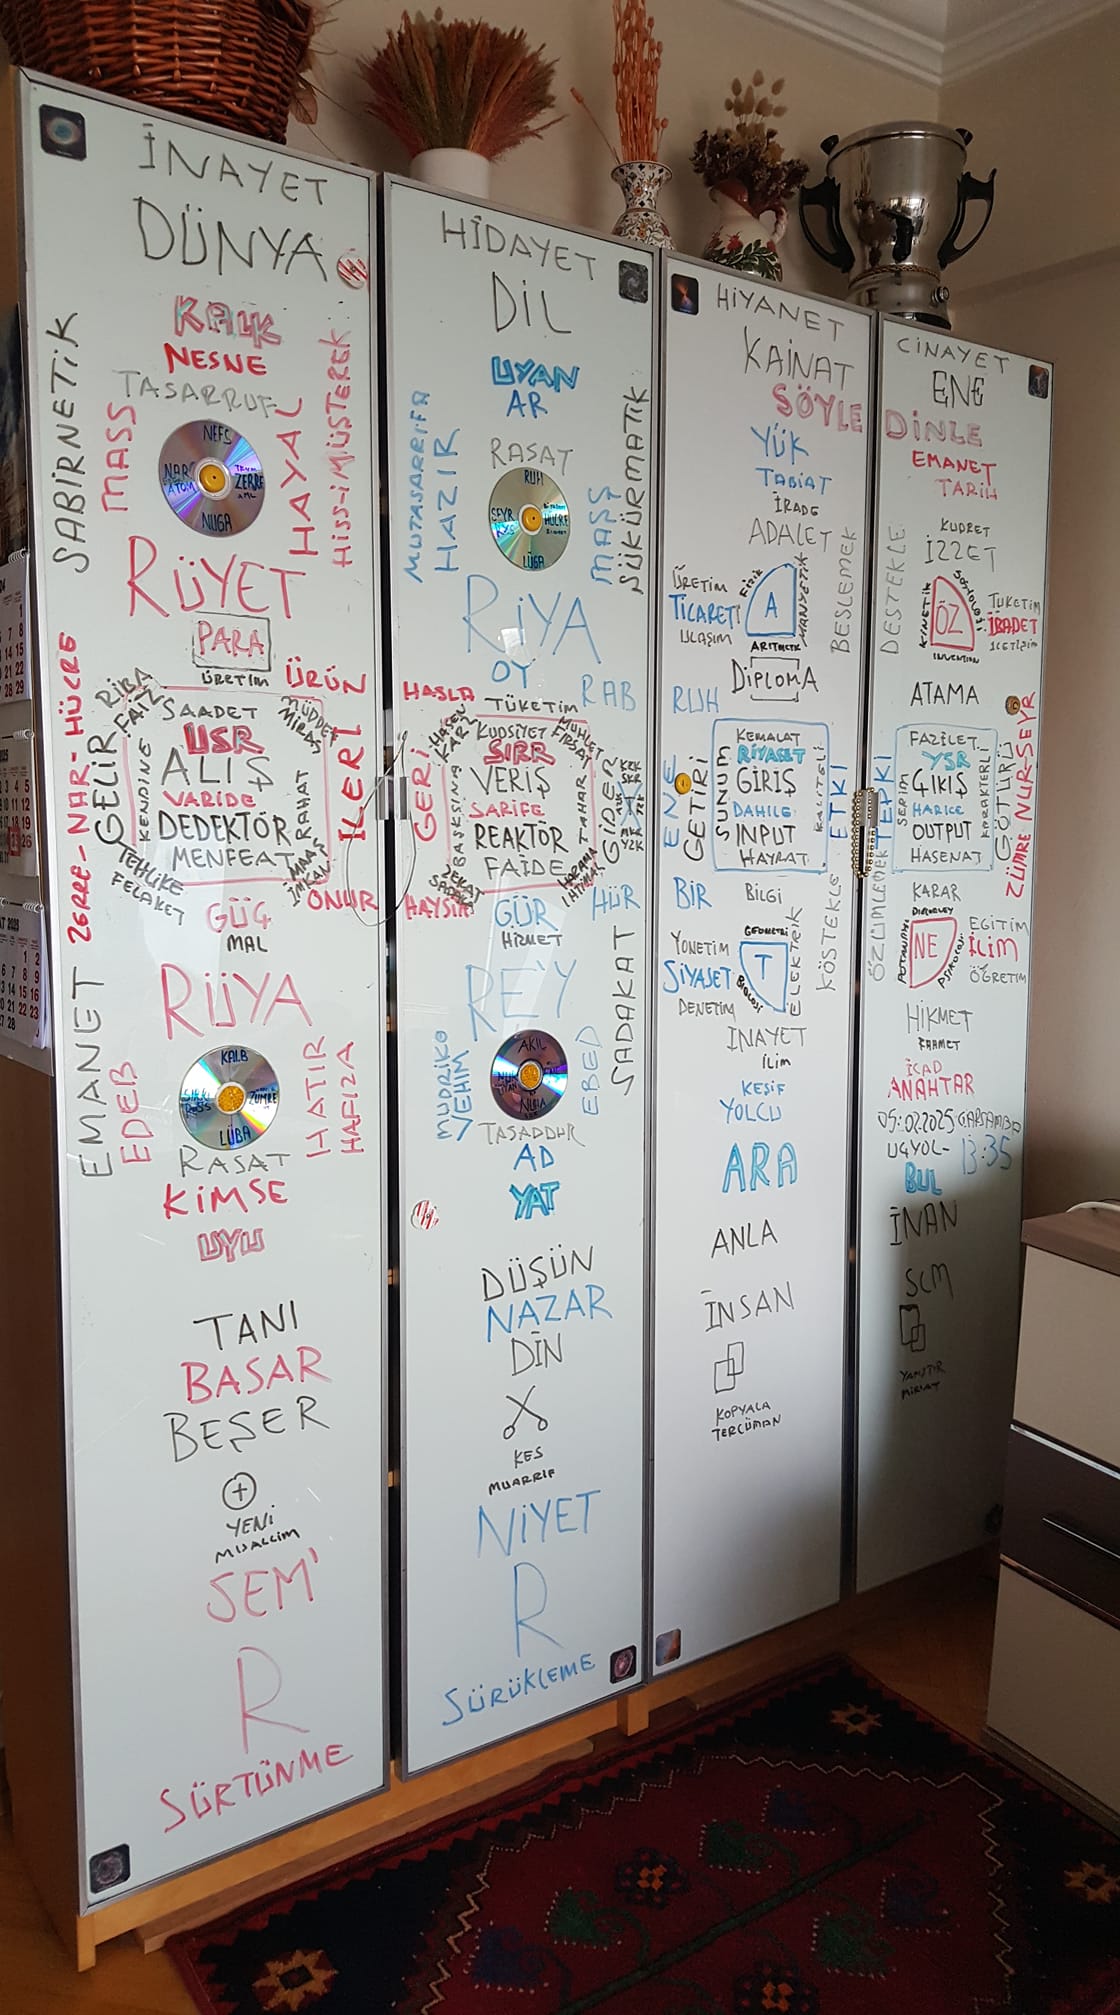 İNAYET
DÜNYA
KALK
NESNE
TASARRUF
SABİRNETİK
MASS
HAYAL
HİSS-İ MÜŞTEREK
NEFS
NAR
ATOM
ZERRE
NUGA
RÜYET
PARA
ÜRETİM
ÜRÜN
RİBA
FAİZ
SAADET
MÜDDET
MİRAS
USR
ALIŞ
VARİDE
DEDEKTÖR
MENFEAT
GELİR
KENDİNE
RAHAT
İLERİ
MAAŞ
İMKAN
TEHLİKE
FELAKET
ONUR
ZERRE-NAR-HÜCRE
GÜÇ
MAL
RÜYA
EMANET
EDEB
HATIR
HAFIZA
KALB
ZÜMRE
LÜBA
RASAT
KİMSE
UYU
TANI
BASAR
BEŞER
YENİ
MUALLİM
SEM'
R
SÜRTÜNME
HİDAYET
DİL
UYAN
AR
RASAT
MUTASARRIFA
HAZIR
MASS
SÜKÜRMATİK
RUH
SEYR
HÜCRE
LÜGA
RİYA
OY
RAB
HASLA
TÜKETİM
KUDSİYET
MÜHLET
FIRSAT
SIRR
VERİŞ
SARİFE
REAKTÖR
FAİDE
GERİ
KAR
BAŞKASINA
TAHAR
GİDER
ZEKAT
SADAKA
HAYSİR
GÜR
HİZMET
HÜR
REY
SADAKAT
MÜDRİKO
VEHİM
EBED
AKIL
TASADDUR
AD
YAT
DÜŞÜN
NAZAR
DİN
KES
MUARRİF
NİYET
R
SÜRÜKLEME
HİYANET
KAİNAT
SÖYLE
YÜK
TABİAT
İRADE
ADALET
BESLEMEK
ÜRETİM
TİCARET
ULAŞIM
FİZİK
A
MANYETİK
ARİTMETİK
DİPLOMA
RUH
KEMALAT
RİYASET
GİRİŞ
DAHİLE
INPUT
HAYRAT
ENE
GETİRİ
SUNUM
KALİTELİ
ETKİ
BİR
BİLGİ
KÖSTEKLE
YÖNETİM
SİYASET
DENETİM
GEOMETRİ
T
BİOLOJİ
ELEKTRİK
İNAYET
İLİM
KEŞİF
YOLCU
ARA
ANLA
İNSAN
KOPYALA
TERCÜMAN
CİNAYET
ENE
DİNLE
EMANET
TARİH
KUDRET
İZZET
DESTEKLE
KİNETİK
ÖZ
SOSYOLOJİ
INVENTION
TÜKETİM
İBADET
İLETİŞİM
ATAMA
FAZİLET
YSR
ÇIKIŞ
HARİCE
OUTPUT
HASENAT
TEPKİ
SERİM
KARAKTERLİ
GÖTÜRÜ
ZÜMRE NUR-SEYR
ÖZÜMLEMEK
KARAR
NE
PSİKOLOJİ
EĞİTİM
İLİM
ÖĞRETİM
HİKMET
RAHMET
İCAD
ANAHTAR
05.02.2025 ÇARŞAMBA
UÇYOL-
13:35
BUL
İNAN
SCM
YAPIŞTIR
MİRSAT